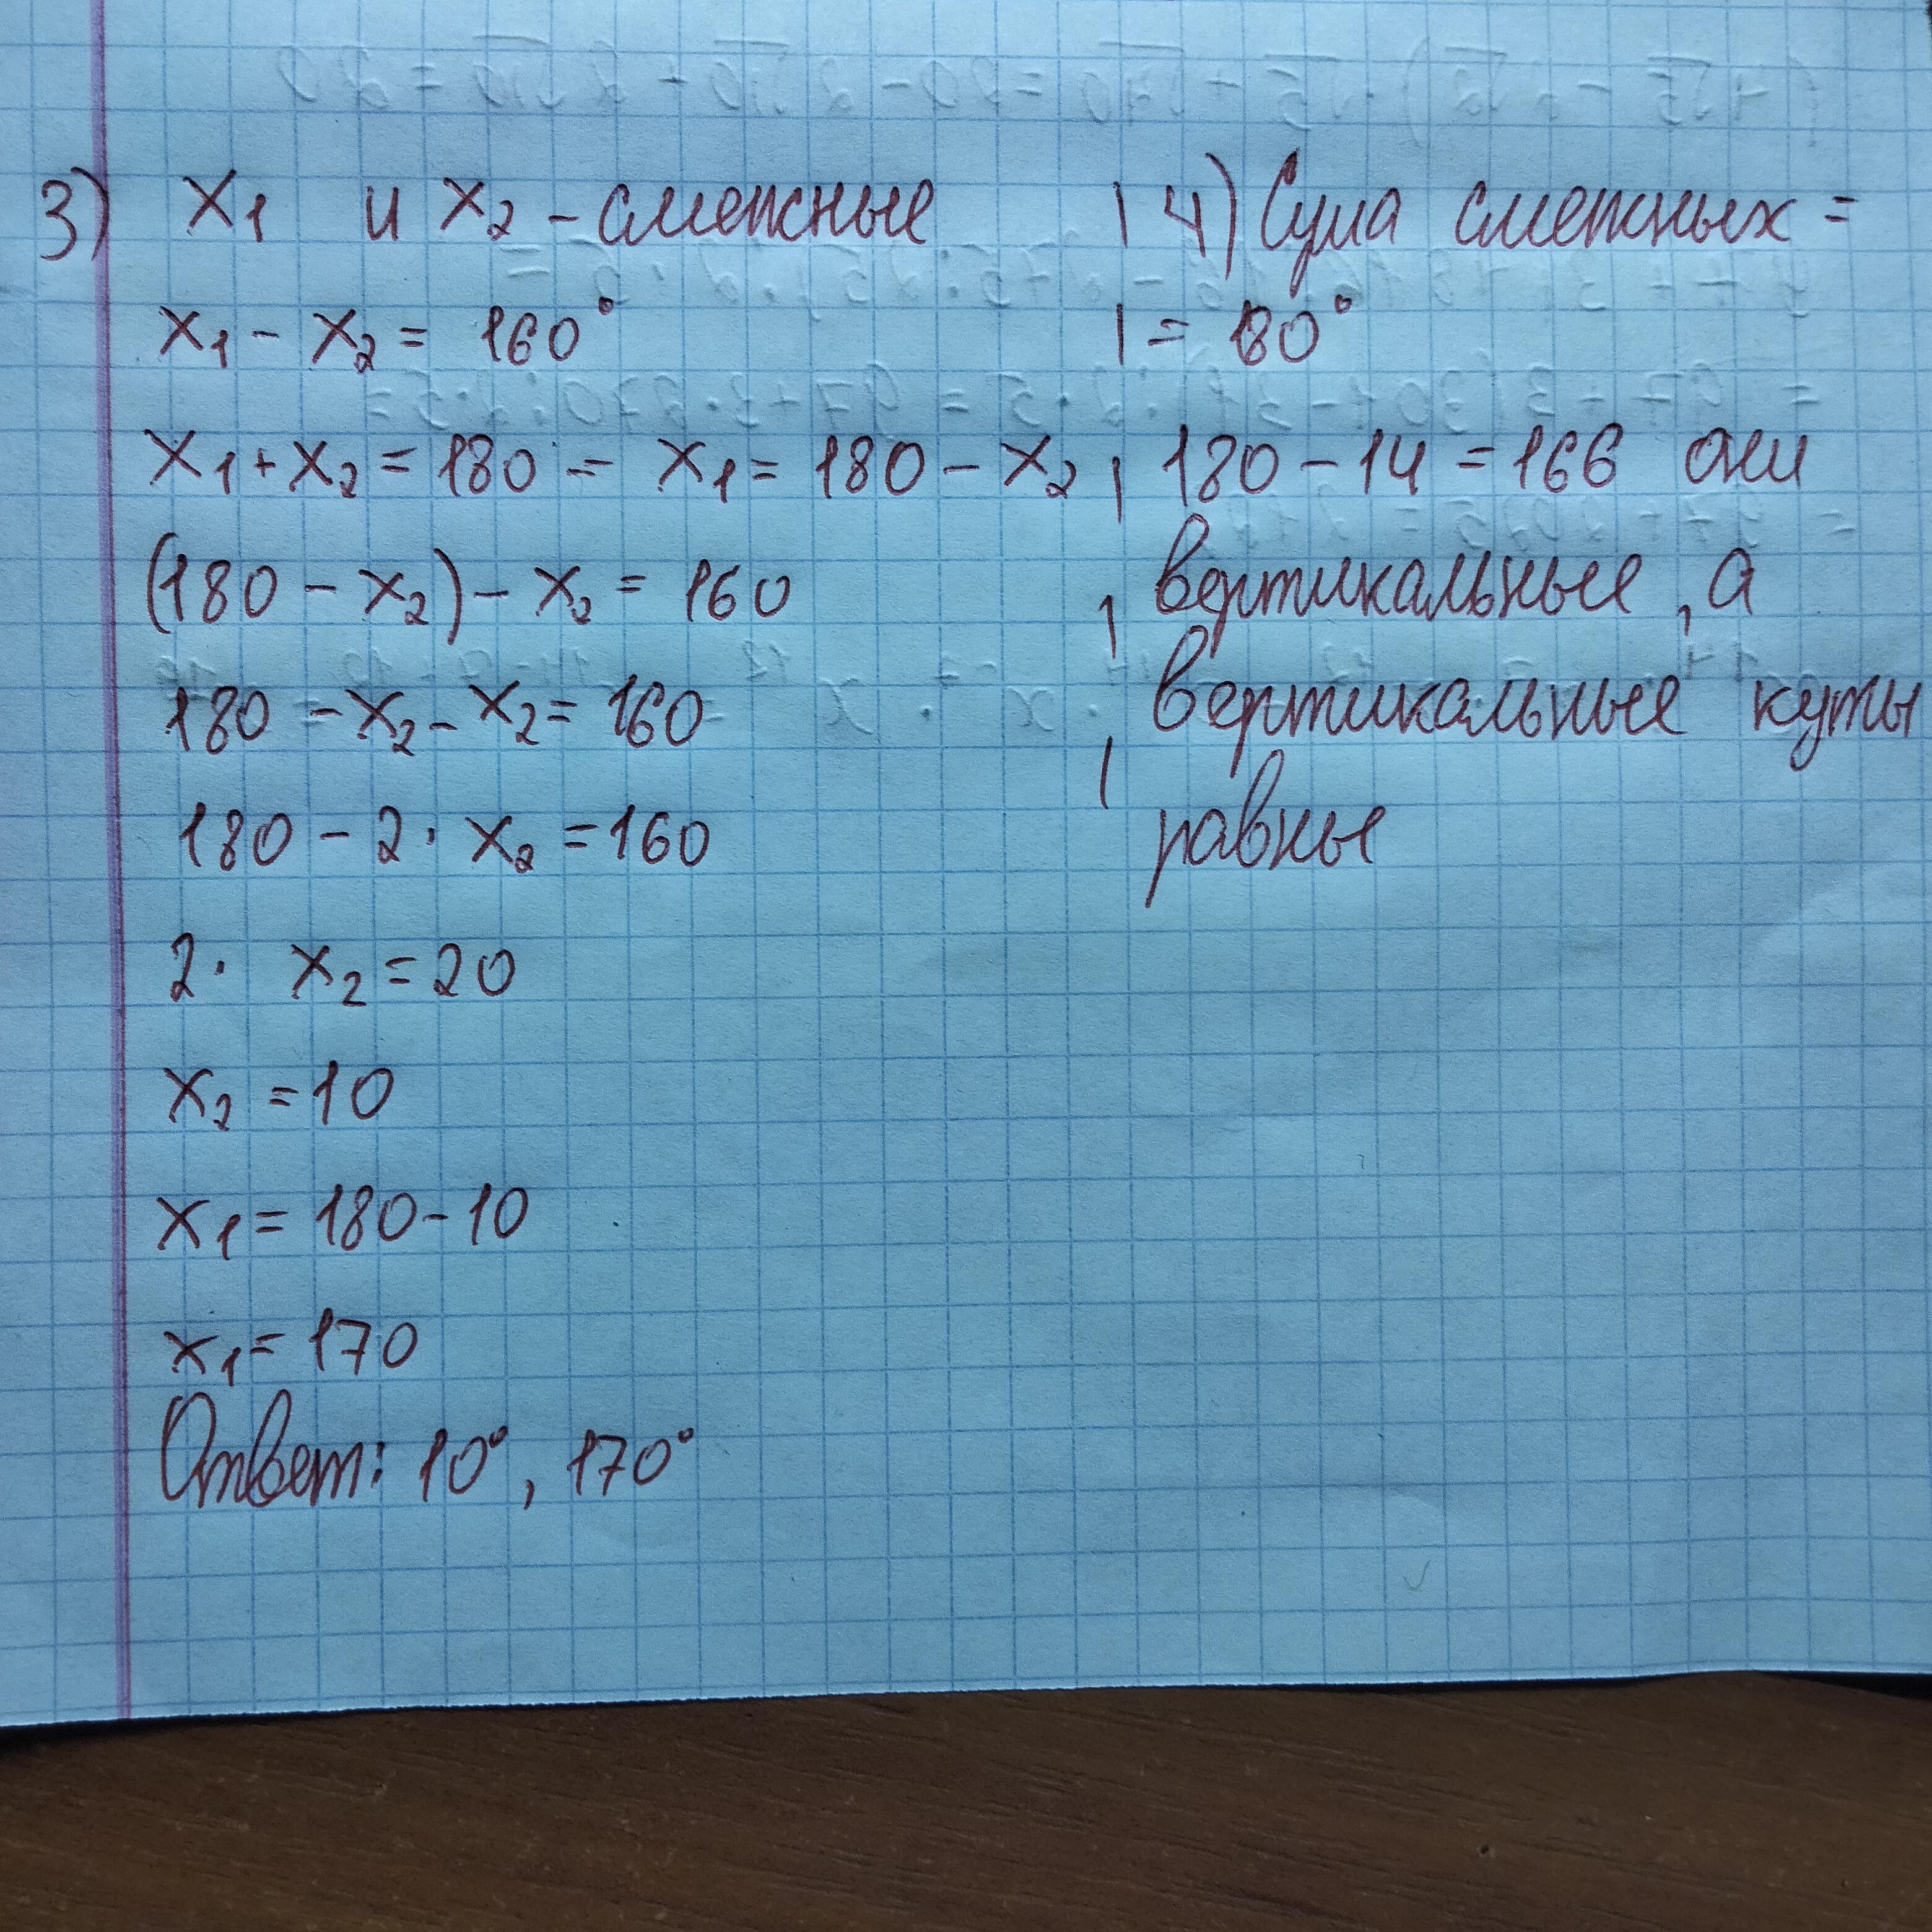 3) x₁ и x₂ - смежные
x₁ - x₂ = 160°
x₁ + x₂ = 180 = x₁ = 180 - x₂
(180 - x₂) - x₂ = 160
180 - x₂ - x₂ = 160
180 - 2 · x₂ = 160
2 · x₂ = 20
x₂ = 10
x₁ = 180 - 10
x₁ = 170
Ответ: 10°, 170°
4) Сума смежных =
= 180°
180 - 14 = 166 они
вертикальные, а
вертикальные куты
равны